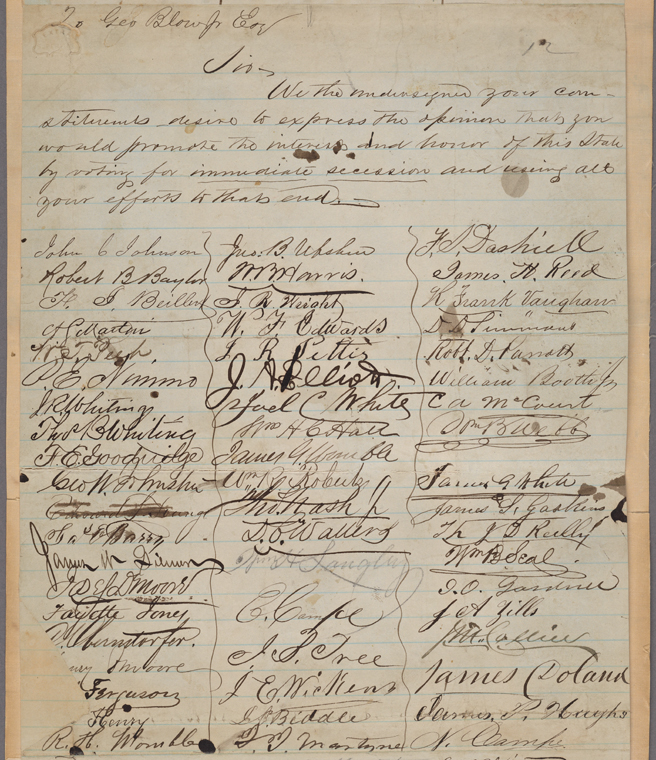 To Geo Blow Jr Esq
12
Sir
We the undersigned your con-
stituents desire to express the opinion that you
would promote the interest and honor of this State
by voting for immediate secession and using all
your efforts to that end.
John C Johnson
Robert B Baylor
P. E. Nimmo
J. R. Whiting
Thos B Whiting
F. E. Goodridge
Geo W. Johnson
James
Moore
Fayette Jones
Moore
Ferguson
Henry
R. H. Womble
Jno. B. Upshur
W B Morris.
S. R. Wright
W. F. Edwards
J. R. Pettis
J. A. Elliott
Joel C White
Wm H C Hall
James G Womble
Wm C Roberts
Thos. Nash Jr
D. C. Walters
Langley
E. Camp
J. S. Tree
J E Wickens
Biddle
Martyne
F. S. Dashiell
James. H. Reed
K Frank Vaughan
Simmons
Robt. D. Parrott
William Booth
C A McCourt
Webb
James G White
James S. Gaskins
J B Reilly
Wm B. Seal
J. O. Gardner
J A Zills
J M. Collier
James Doland
James. P. Hughs
N. Camp.